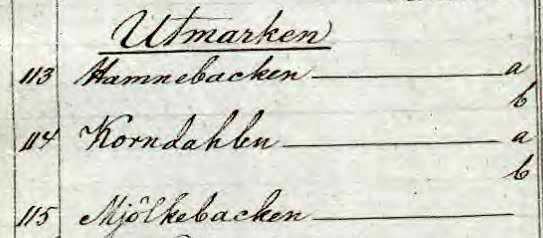 Utmarken
113 Hamnebacken a
b
114 Korndahlen a
b
115 Mjölkebacken